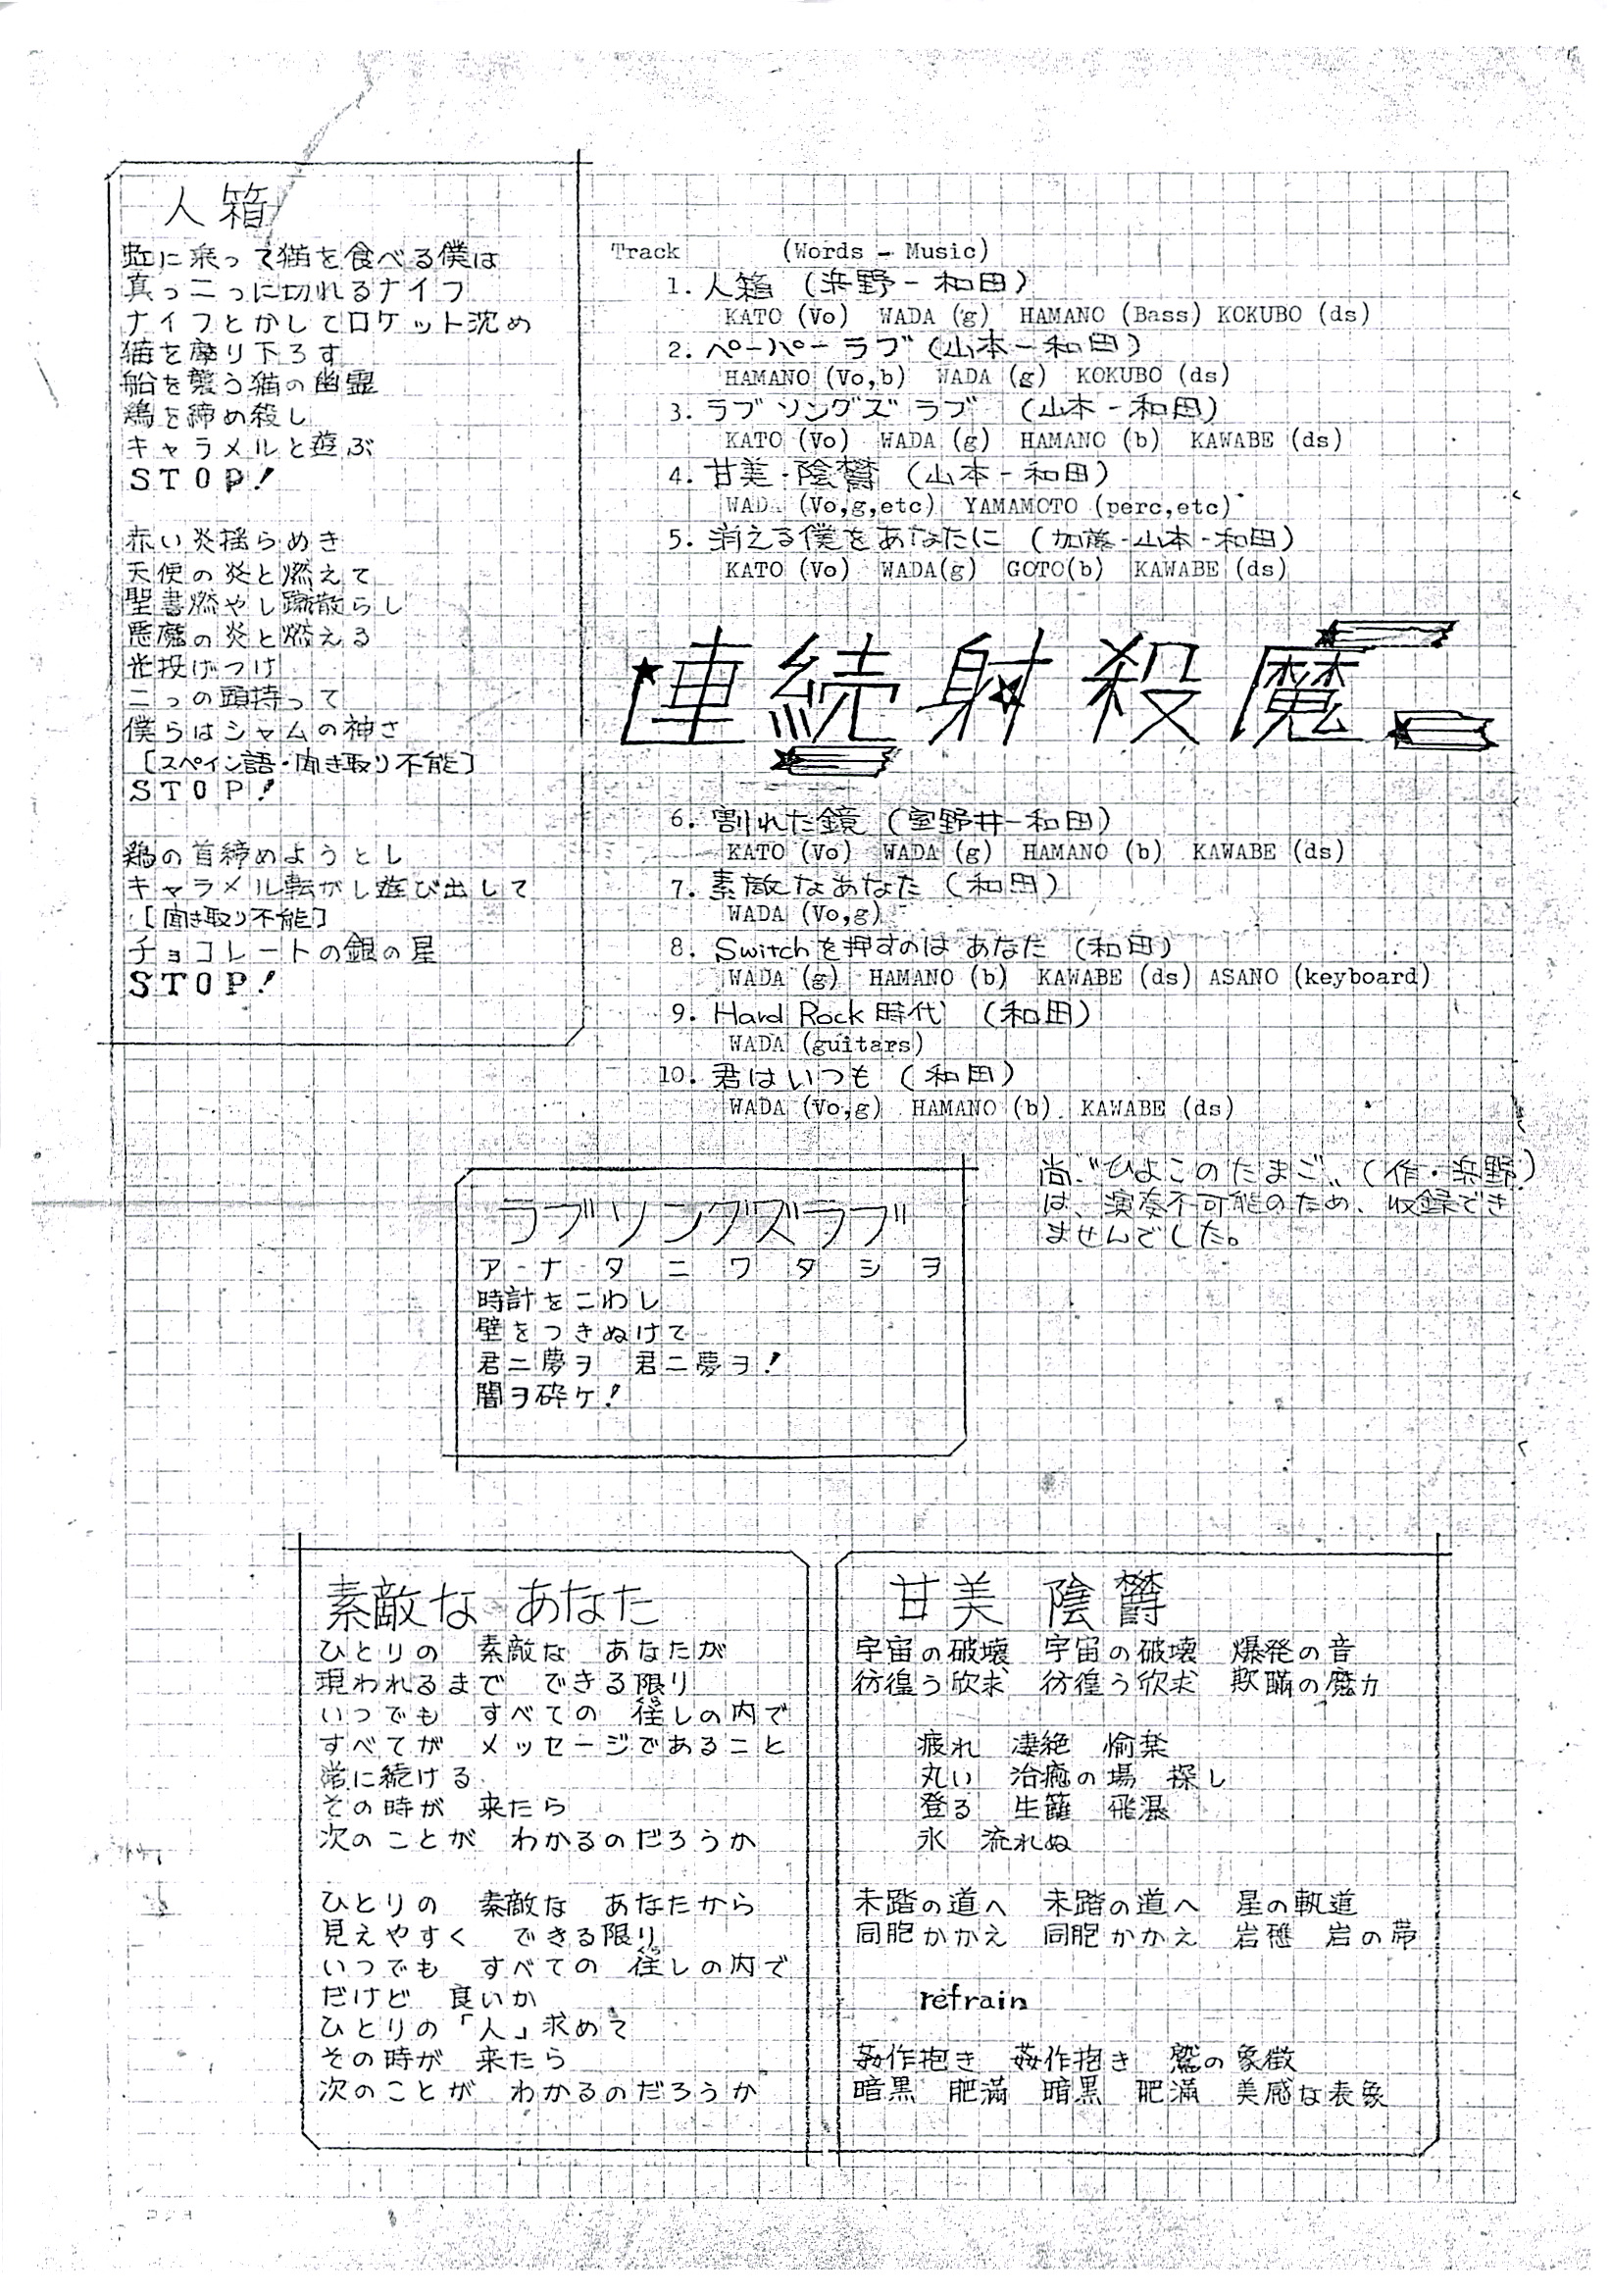 人箱
虹に乗って猫を食べる僕は
真っ二つに切れるナイフ
ナイフとかしてロケット沈め
猫を摩り下ろす
船を襲う猫の幽霊
鶏を締め殺し
キャラメルと遊ぶ
STOP!
赤い炎揺らめき
天使の炎と燃えて
聖書燃やし蹴散らし
悪魔の炎と燃える
光投げつけ
二つの頭持って
僕らはシャムの神さ
[スペイン語・聞き取り不能]
STOP!
鶏の首締めようとし
キャラメル転がし遊び出して
[聞き取り不能]
チョコレートの銀の星
STOP!
Track (Words - Music)
1. 人箱 (浜野-和田)
KATO (Vo) WADA (g) HAMANO (Bass) KOKUBO (ds)
2. ペーパーラブ (山本-和田)
HAMANO (Vo,b) WADA (g) KOKUBO (ds)
3. ラブソングズラブ (山本-和田)
KATO (Vo) WADA (g) HAMANO (b) KAWABE (ds)
4. 甘美・陰欝 (山本-和田)
WADA (Vo,g,etc) YAMAMOTO (perc,etc)
5. 消える僕をあなたに (加藤-山本-和田)
KATO (Vo) WADA(g) GOTO(b) KAWABE (ds)
連続射殺魔
6. 割れた鏡 (室野井-和田)
KATO (Vo) WADA (g) HAMANO (b) KAWABE (ds)
7. 素敵なあなた (和田)
WADA (Vo,g)
8. Switchを押すのは あなた (和田)
WADA (g) HAMANO (b) KAWABE (ds) ASANO (keyboard)
9. Hard Rock 時代 (和田)
WADA (guitars)
10. 君はいつも (和田)
WADA (Vo,g) HAMANO (b) KAWABE (ds)
尚、〝ひよこのたまご〟(作・浜野)
は、演奏不可能のため、収録でき
ませんでした。
ラブソングズラブ
アナタニワタシヲ
時計をこわし
壁をつきぬけて
君ニ夢ヲ 君ニ夢ヲ!
闇ヲ砕ケ!
素敵な あなた
ひとりの 素敵な あなたが
現われるまで できる限り
いつでも すべての しの内で
すべてが メッセージであること
常に続ける
その時が 来たら
次のことが わかるのだろうか
ひとりの 素敵な あなたから
見えやすく できる限り
いつでも すべての しの内で
だけど 良いか
ひとりの「人」求めて
その時が 来たら
次のことが わかるのだろうか
甘美 陰欝
宇宙の破壊 宇宙の破壊 爆発の音
彷徨う欣求 彷徨う欣求 欺瞞の魔力
疲れ 凄絶 愉楽
丸い 治癒の場 探し
登る 生 飛瀑
氷 流れぬ
未踏の道へ 未踏の道へ 星の軌道
同胞かかえ 同胞かかえ 岩 岩の帯
refrain
作抱き 作抱き の象徴
暗黒 肥満 暗黒 肥満 美感な表象